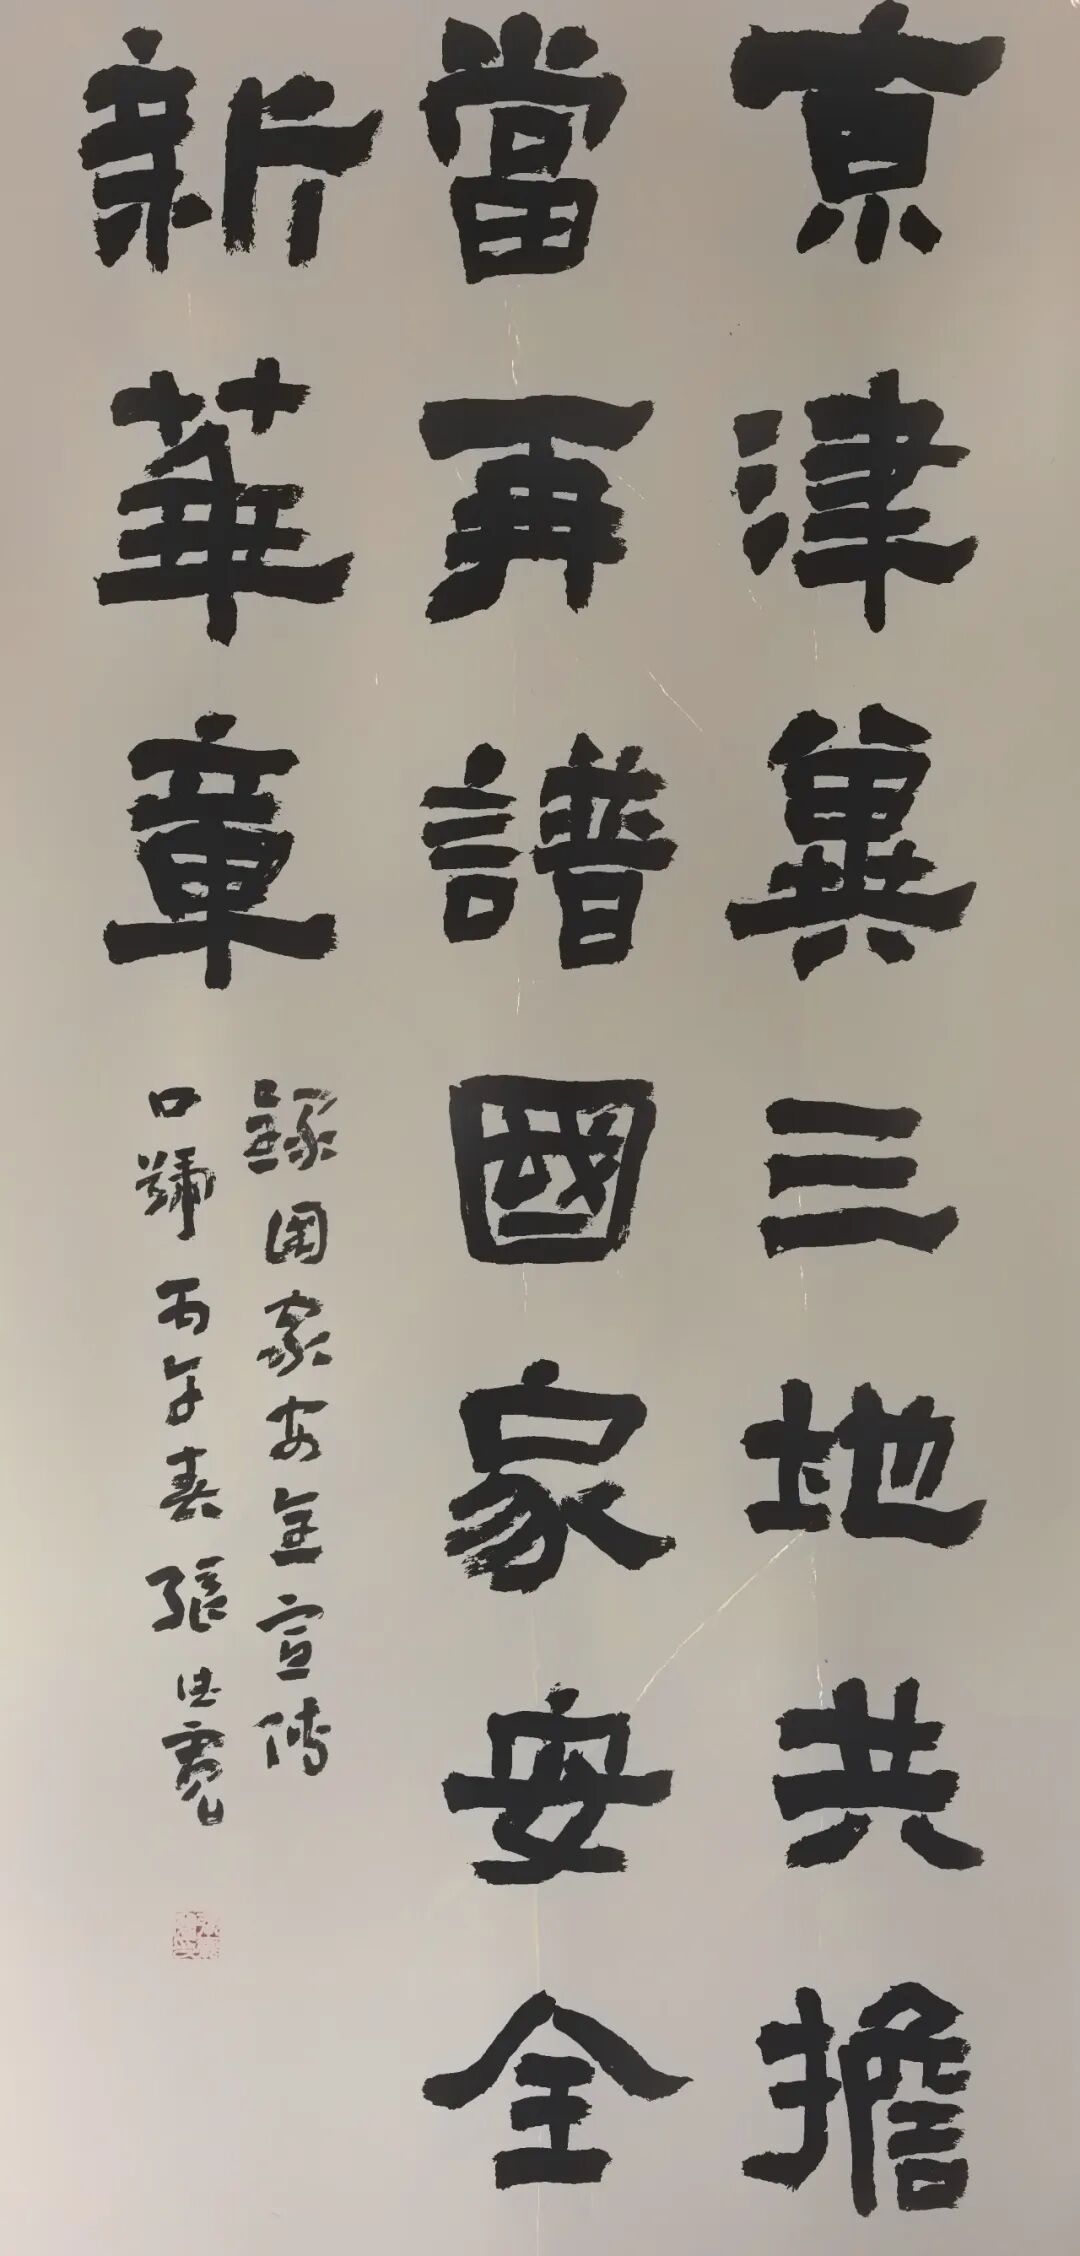 京津冀三地共擔
當再譜國家安全
新華章
錄國家安全宣傳
口號丙午春張